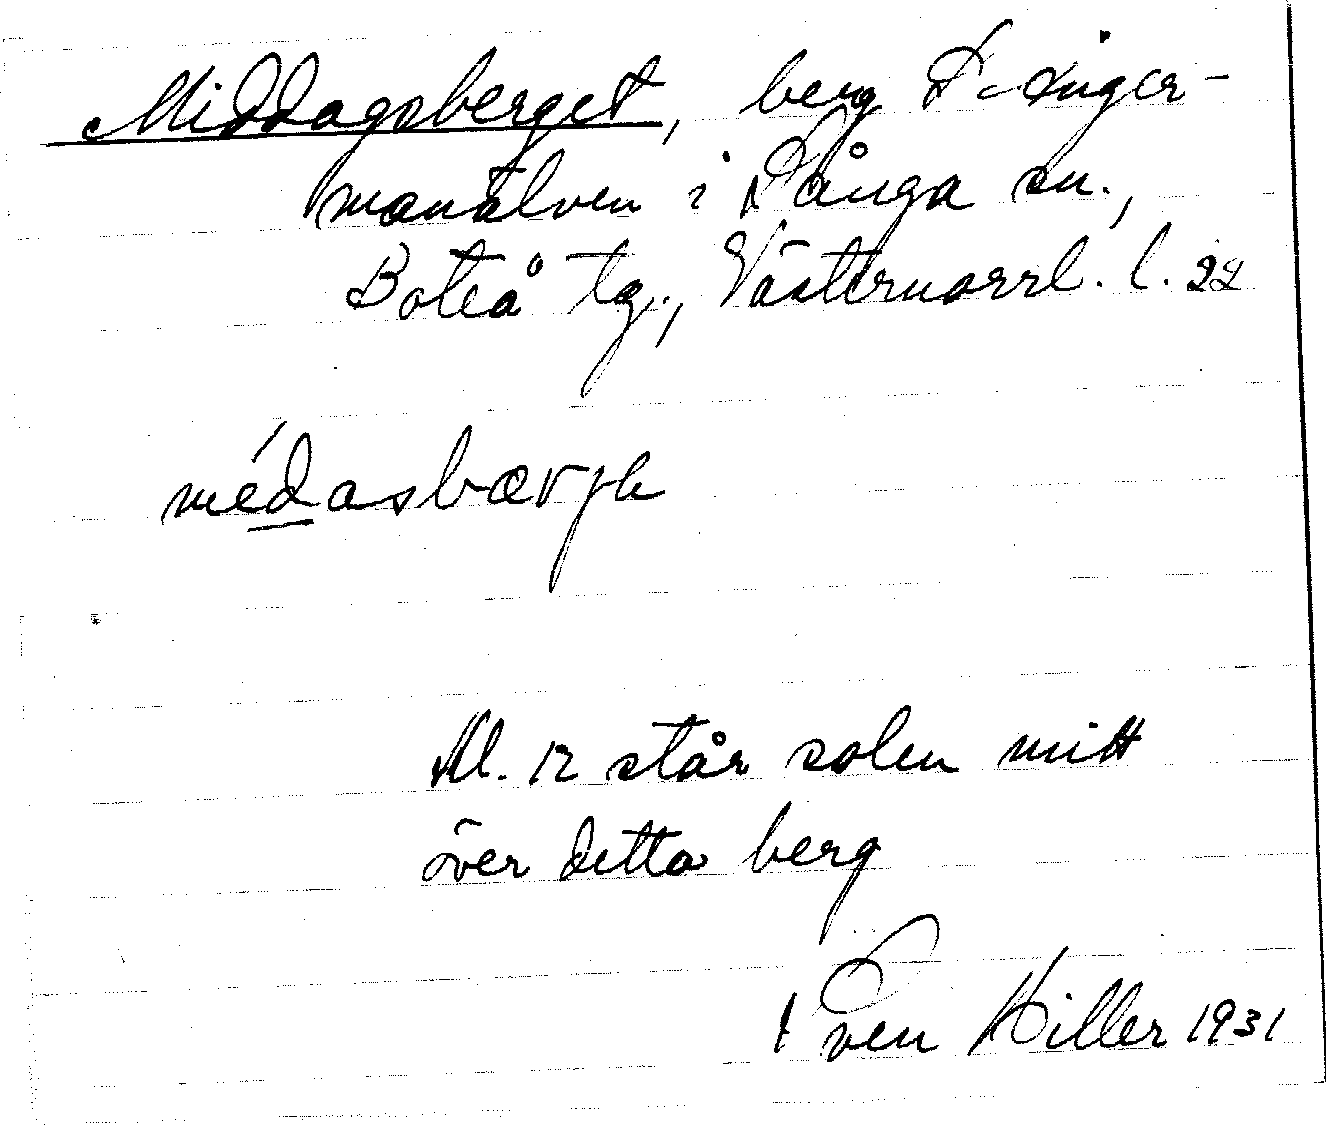 Middagsberget, berg v. Ånger-
manälven i Sånga sn.,
Boteå tg., Västernorrl. l. 22
médasbærjə
Kl. 12 står solen mitt
över detta berg
Sven Hiller 1931